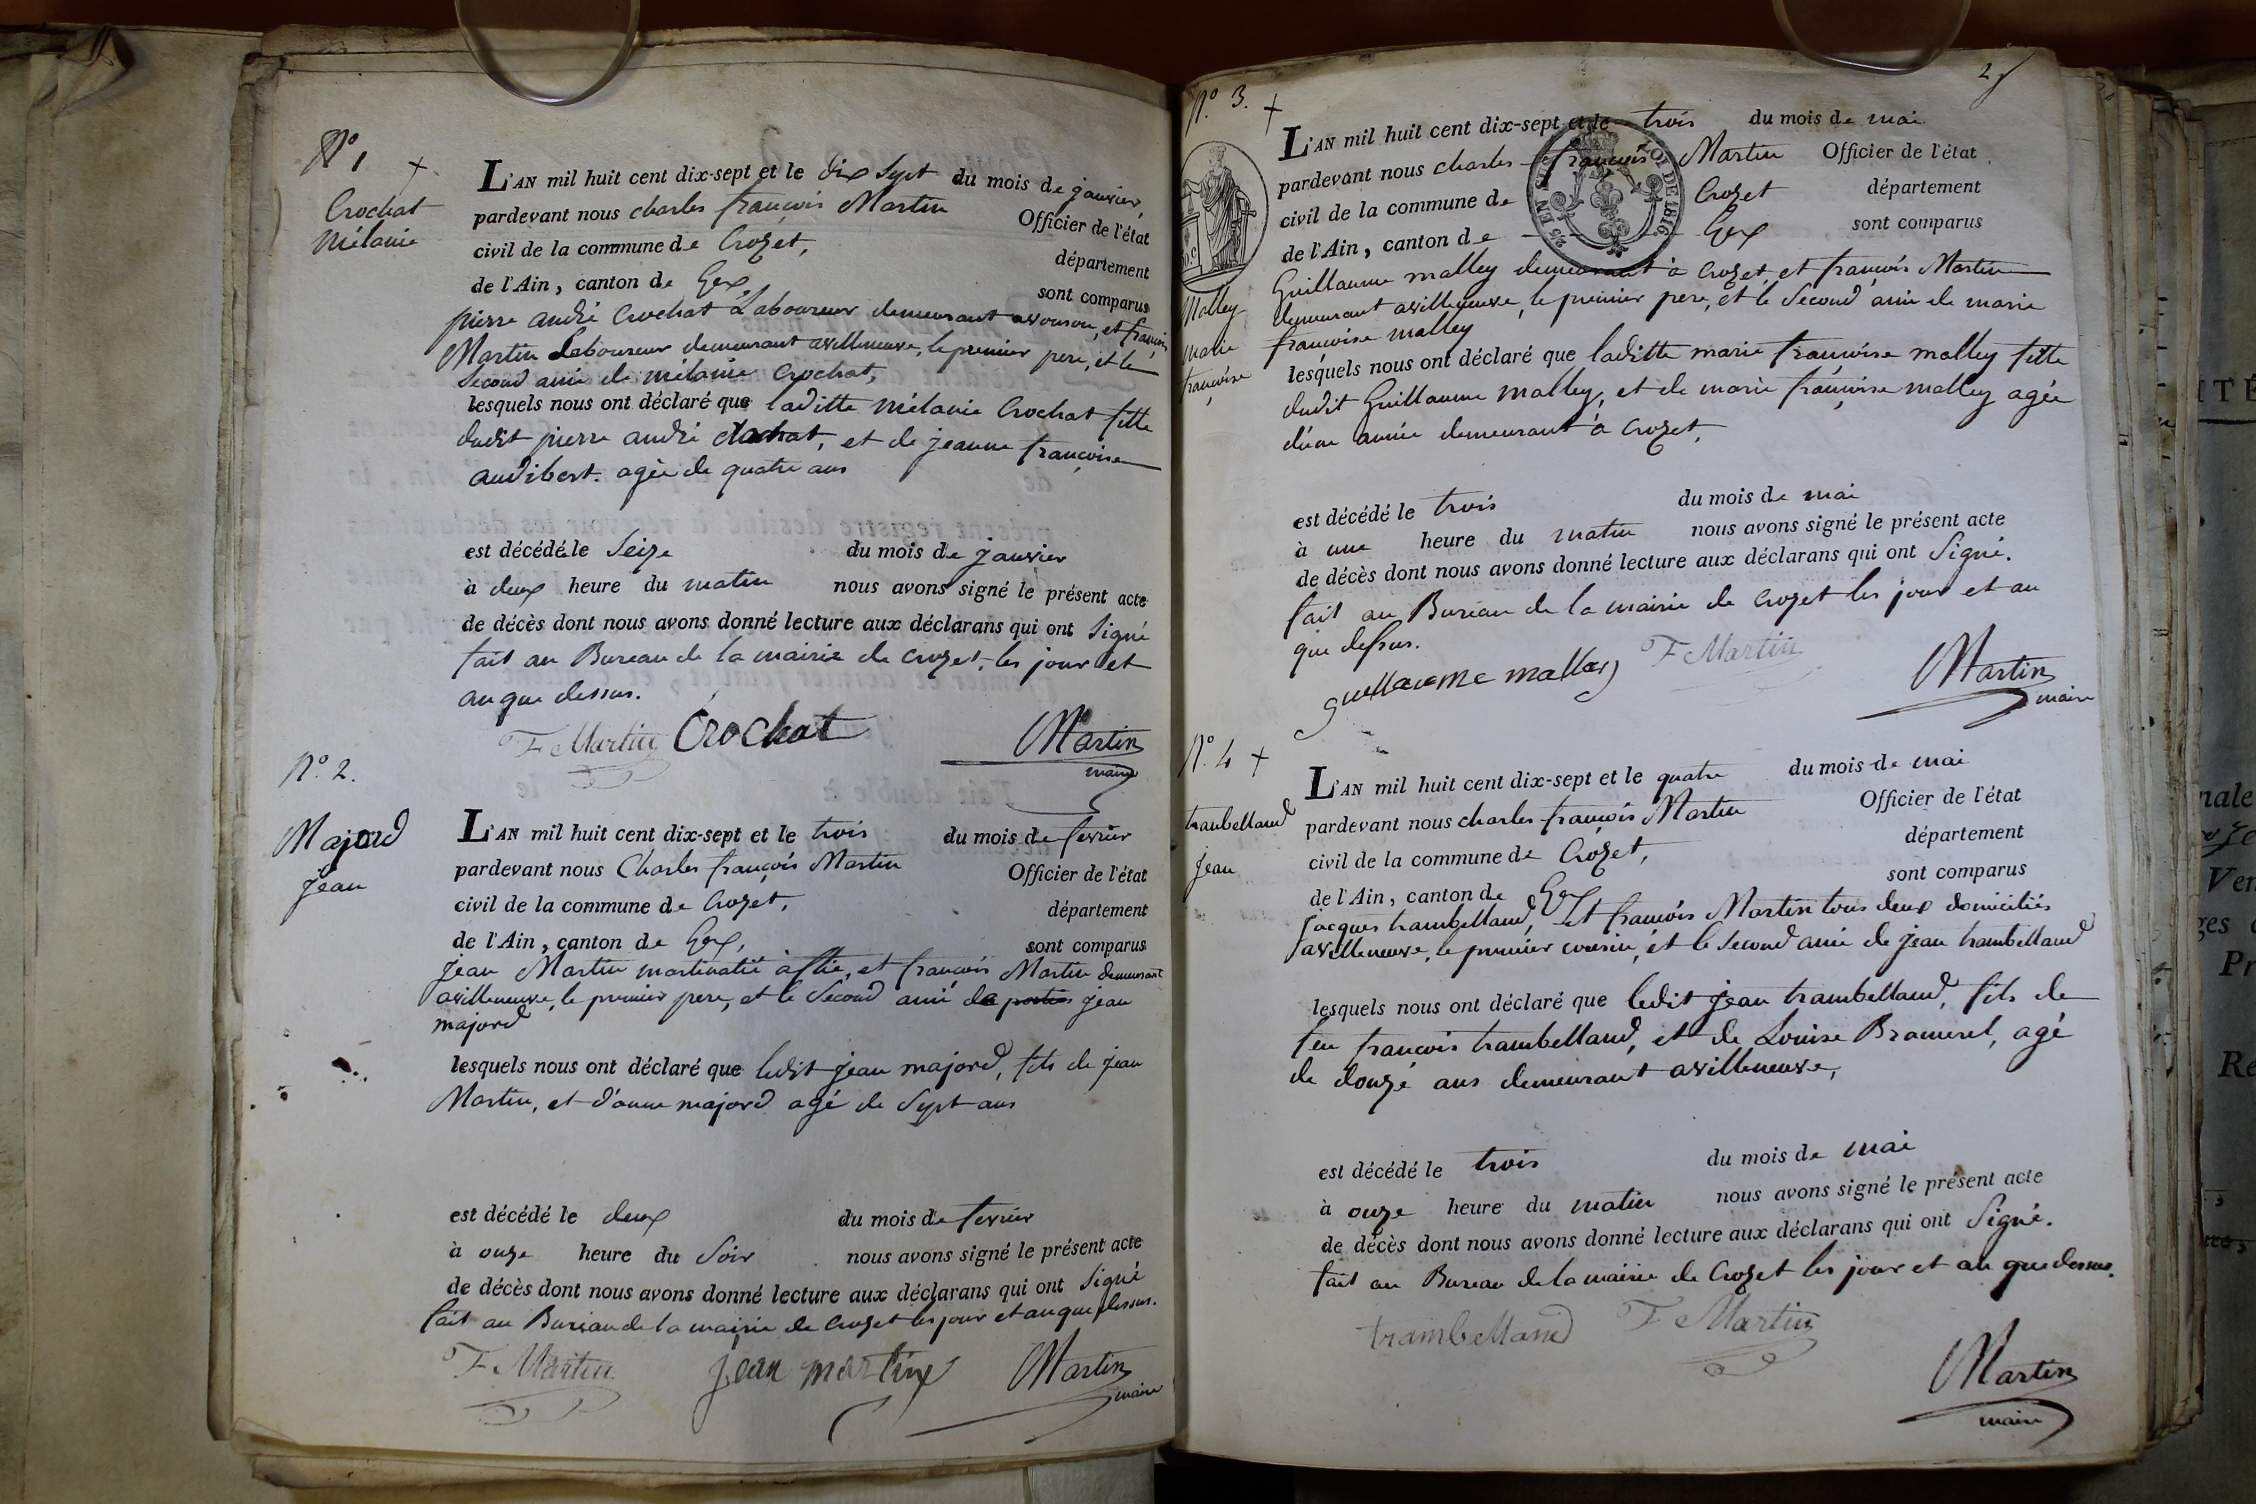 N° 1
Crochat
Mélanie
L'AN mil huit cent dix-sept et le dix Sept du mois de janvier,
pardevant nous charles françois Martin Officier de l'état
civil de la commune de Crozet, département
de l'Ain, canton de Gex, sont comparus
pierre andré Crochat Laboureur demeurant avouson, et françois
Martin Laboureur demeurant avilleneuve, le premier pere, et le
Second ami de mélanie Crochat,
lesquels nous ont déclaré que laditte Mélanie Crochat fille
dudit pierre andré Crochat, et de jeanne françoise
audibert. agée de quatre ans
est décédé le Seize du mois de janvier
à deux heure du matin nous avons signé le présent acte
de décès dont nous avons donné lecture aux déclarans qui ont Signé
fait au Bureau de la mairie de crozet, les jour et
an que dessus.
F Martin Crochat Martin
maire
N° 2.
Majord
jean
L'AN mil huit cent dix-sept et le trois du mois de fevrier
pardevant nous Charles françois Martin Officier de l'état
civil de la commune de Crozet, département
de l'Ain, canton de Gex, sont comparus
jean Martin et françois Martin demeurant
avilleneuve, le premier pere, et le Second ami de jean
majord
lesquels nous ont déclaré que ledit jean majord, fils de jean
Martin, et d'anne majord agé de Sept ans
est décédé le deux du mois de fevrier
à onze heure du Soir nous avons signé le présent acte
de décès dont nous avons donné lecture aux déclarans qui ont Signé
fait au Bureau de la mairie de Crozet les jour et an que dessus.
F Martin jean martin Martin
maire
2
N° 3.
Malley
marie
françoise
L'AN mil huit cent dix-sept et le trois du mois de mai
pardevant nous charles françois Martin Officier de l'état
civil de la commune de Crozet département
de l'Ain, canton de Gex sont comparus
DE 1816.
Guillaume malley demeurant à Crozet, et françois Martin
demeurant avilleneuve, le premier pere, et le Second ami de marie
françoise malley
lesquels nous ont déclaré que laditte marie françoise malley fille
dudit Guillaume malley, et de marie françoise malley agée
d'une année demeurant à crozet,
est décédé le trois du mois de mai
à une heure du matin nous avons signé le présent acte
de décès dont nous avons donné lecture aux déclarans qui ont Signé.
fait au Bureau de la mairie de crozet les jour et an
que dessus.
guillaume malley F Martin Martin
maire
N° 4
trambelland
jean
L'AN mil huit cent dix-sept et le quatre du mois de mai
pardevant nous charles françois Martin Officier de l'état
civil de la commune de Crozet, département
de l'Ain, canton de Gex sont comparus
jacques trambelland, et françois Martin tous deux domiciliés
avilleneuve, le premier cousin, et le Second ami de jean trambelland
lesquels nous ont déclaré que ledit jean trambelland, fils de
feu françois trambelland, et de Louise Brameret, agé
de douze ans demeurant avilleneuve,
est décédé le trois du mois de mai
à onze heure du matin nous avons signé le présent acte
de décès dont nous avons donné lecture aux déclarans qui ont Signé.
fait au Bureau de la mairie de Crozet les jour et an que dessus.
trambelland F Martin
Martin
maire